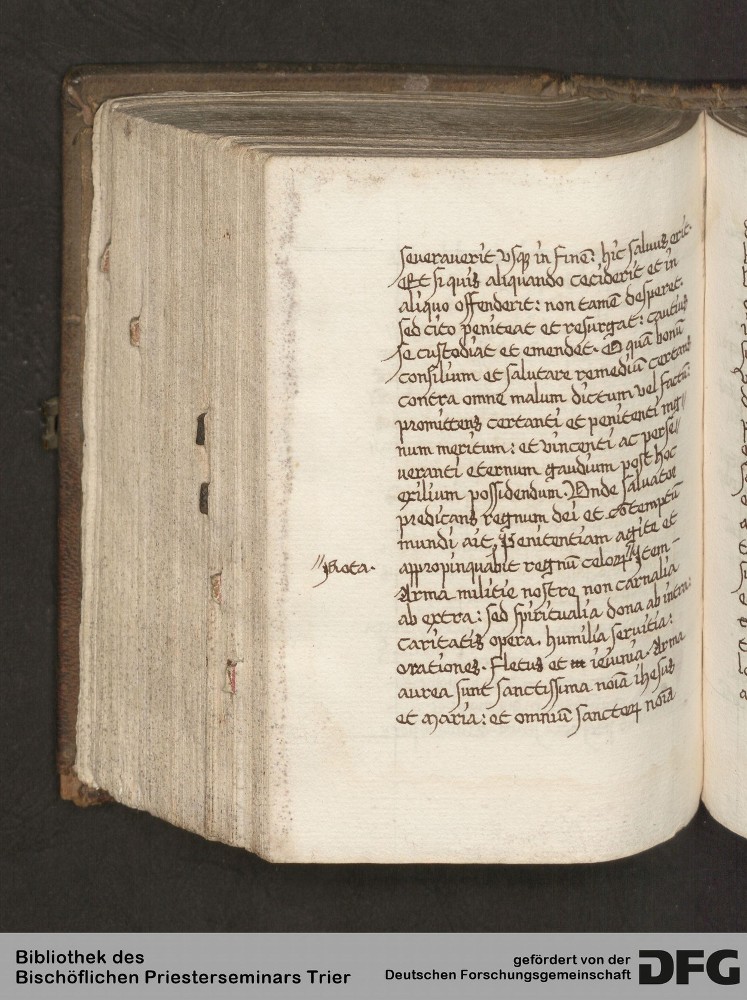 seuerauerit vsqꝫ in finē: hic saluus erit.
Et si quis aliquando ceciderit et in
aliquo offenderit: non tamē desperet.
sed cito peniteat et resurgat: cautius
se custodiat et emendet. O quā bonū
consilium et salutare remediū certans
contra omne malum dictum vel factū:
promittens certanti et penitenti mḡ//
num meritum: et vincenti ac perse//
ueranti eternum gaudium post hoc
exilium possidendum. Vnde saluator
predicans regnum dei et cōtemptū
mundi ait. Penitentiam agite et
//Nota.
appropinquabit regnū celoꝝ// Item -
Arma militie nostre non carnalia
ab extra: sed spiritualia dona ab intra:
caritatis opera. humilia seruitia:
orationes. fletus et ieiunia. Arma
aurea sunt sanctissima noīa ihesus
et maria: et omniū sanctoꝝ noīa
Bibliothek des
Bischöflichen Priesterseminars Trier
gefördert von der
Deutschen Forschungsgemeinschaft
DFG